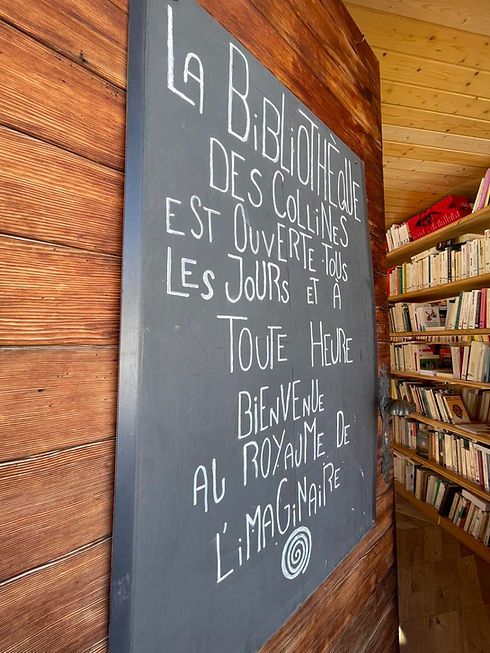 LA BiBLiOTHÈQUE
DES COLLiNES
EST OUVERTE TOUS
LES JOURS ET À
TOUTE HEURE
BiENVENUE
AU ROYAUME DE
L'iMAGiNAiRE